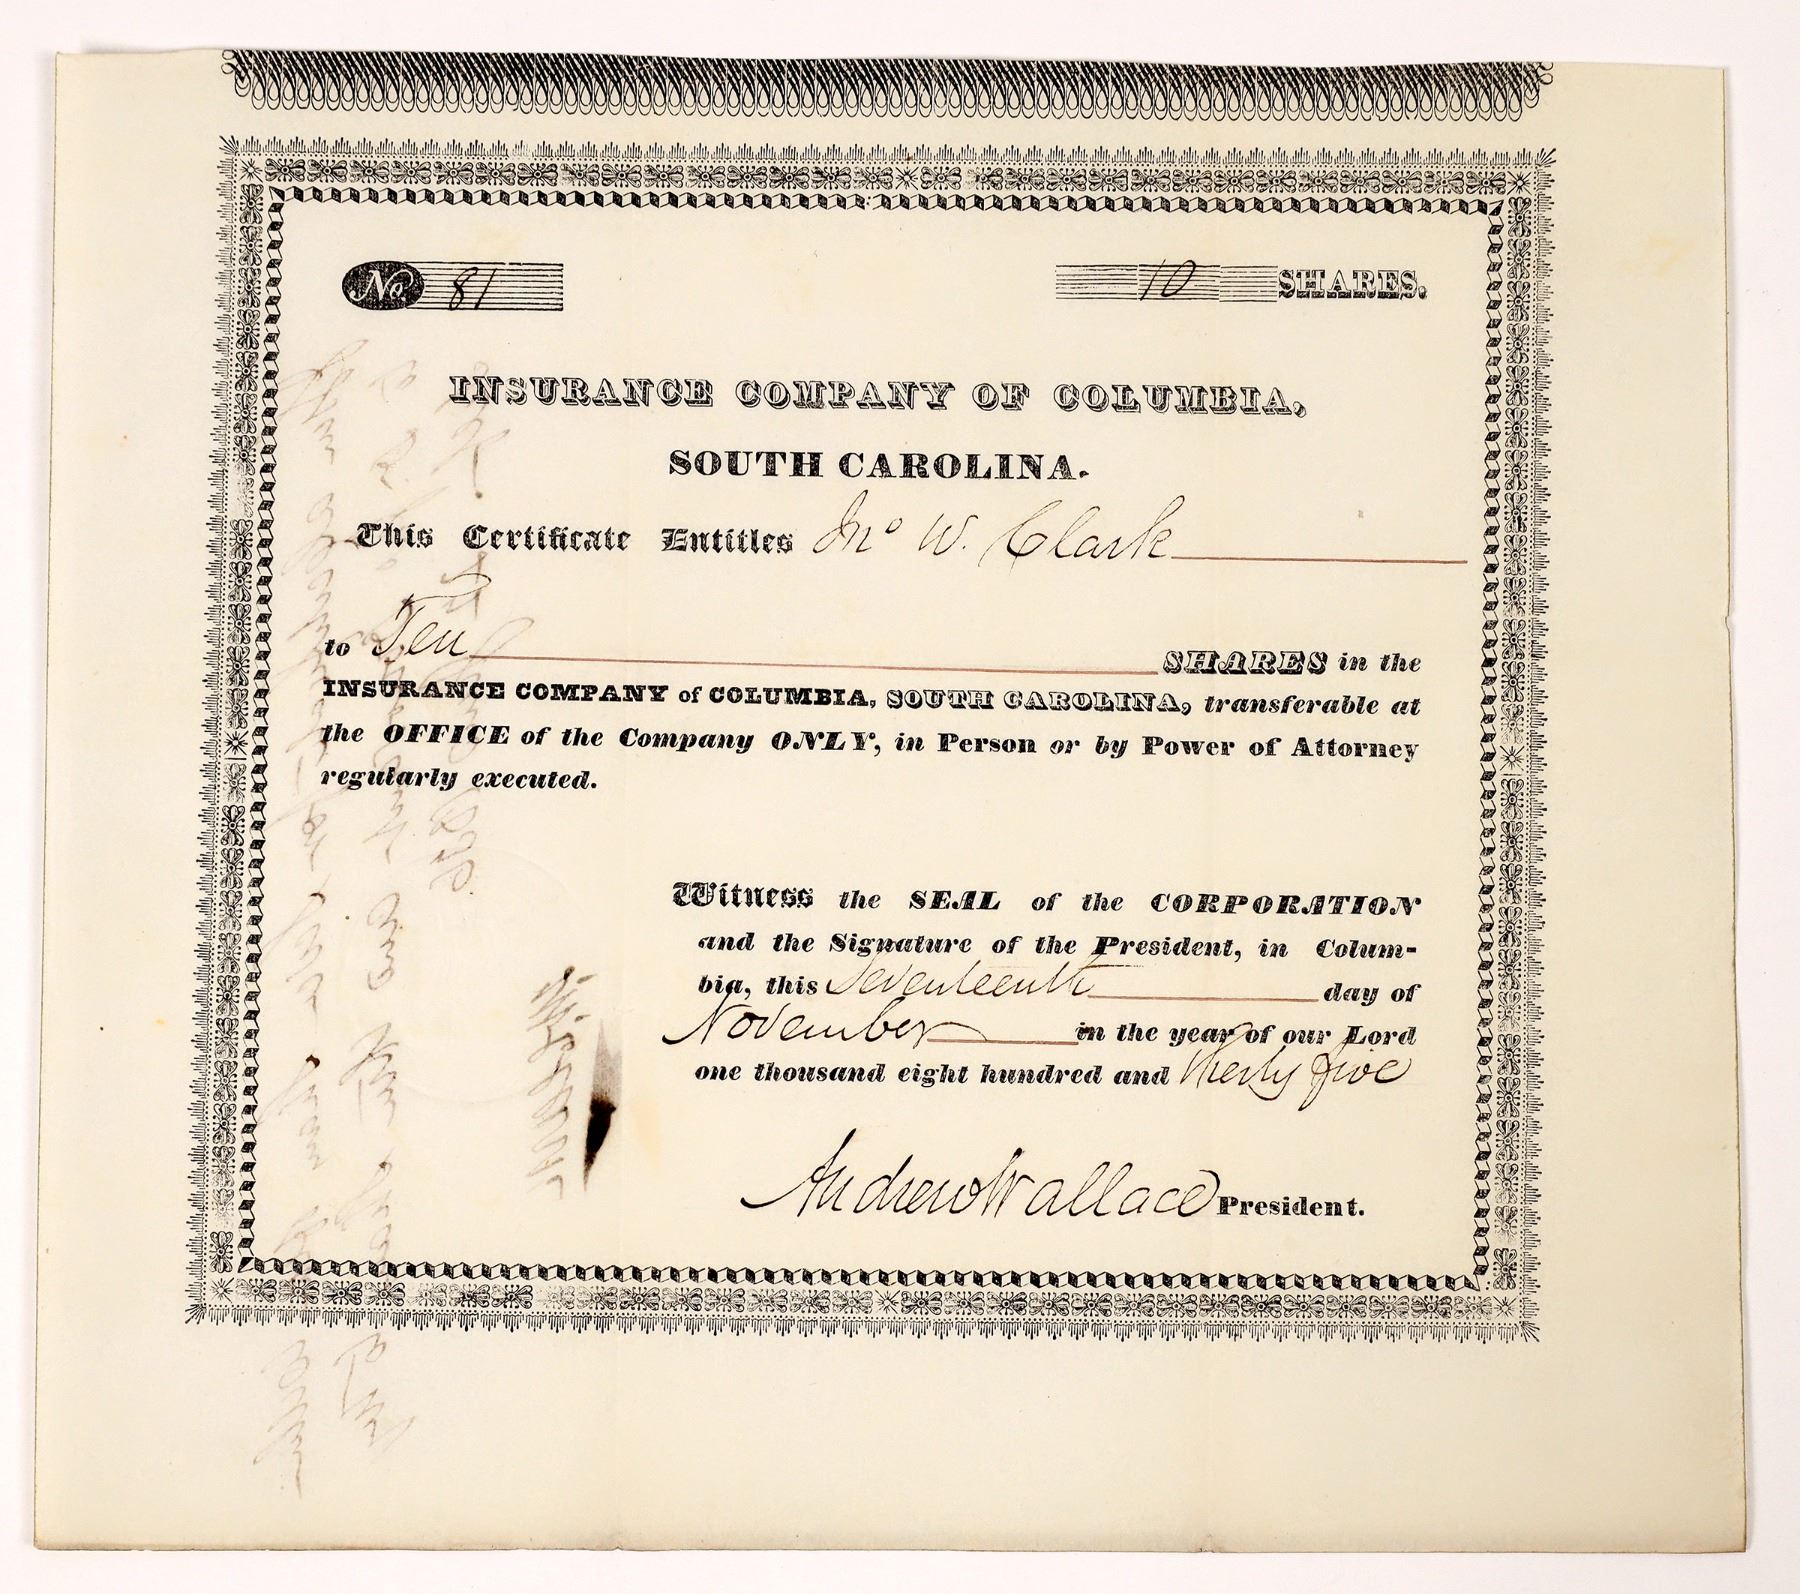 No. 81
10 SHARES.
INSURANCE COMPANY OF COLUMBIA,
SOUTH CAROLINA.
This Certificate Entitles Jno W. Clark
to Ten SHARES in the
INSURANCE COMPANY of COLUMBIA, SOUTH CAROLINA, transferable at
the OFFICE of the Company ONLY, in Person or by Power of Attorney
regularly executed.
Witness the SEAL of the CORPORATION
and the Signature of the President, in Colum-
bia, this Seventeenth day of
November in the year of our Lord
one thousand eight hundred and thirty five
Andrew Wallace President.